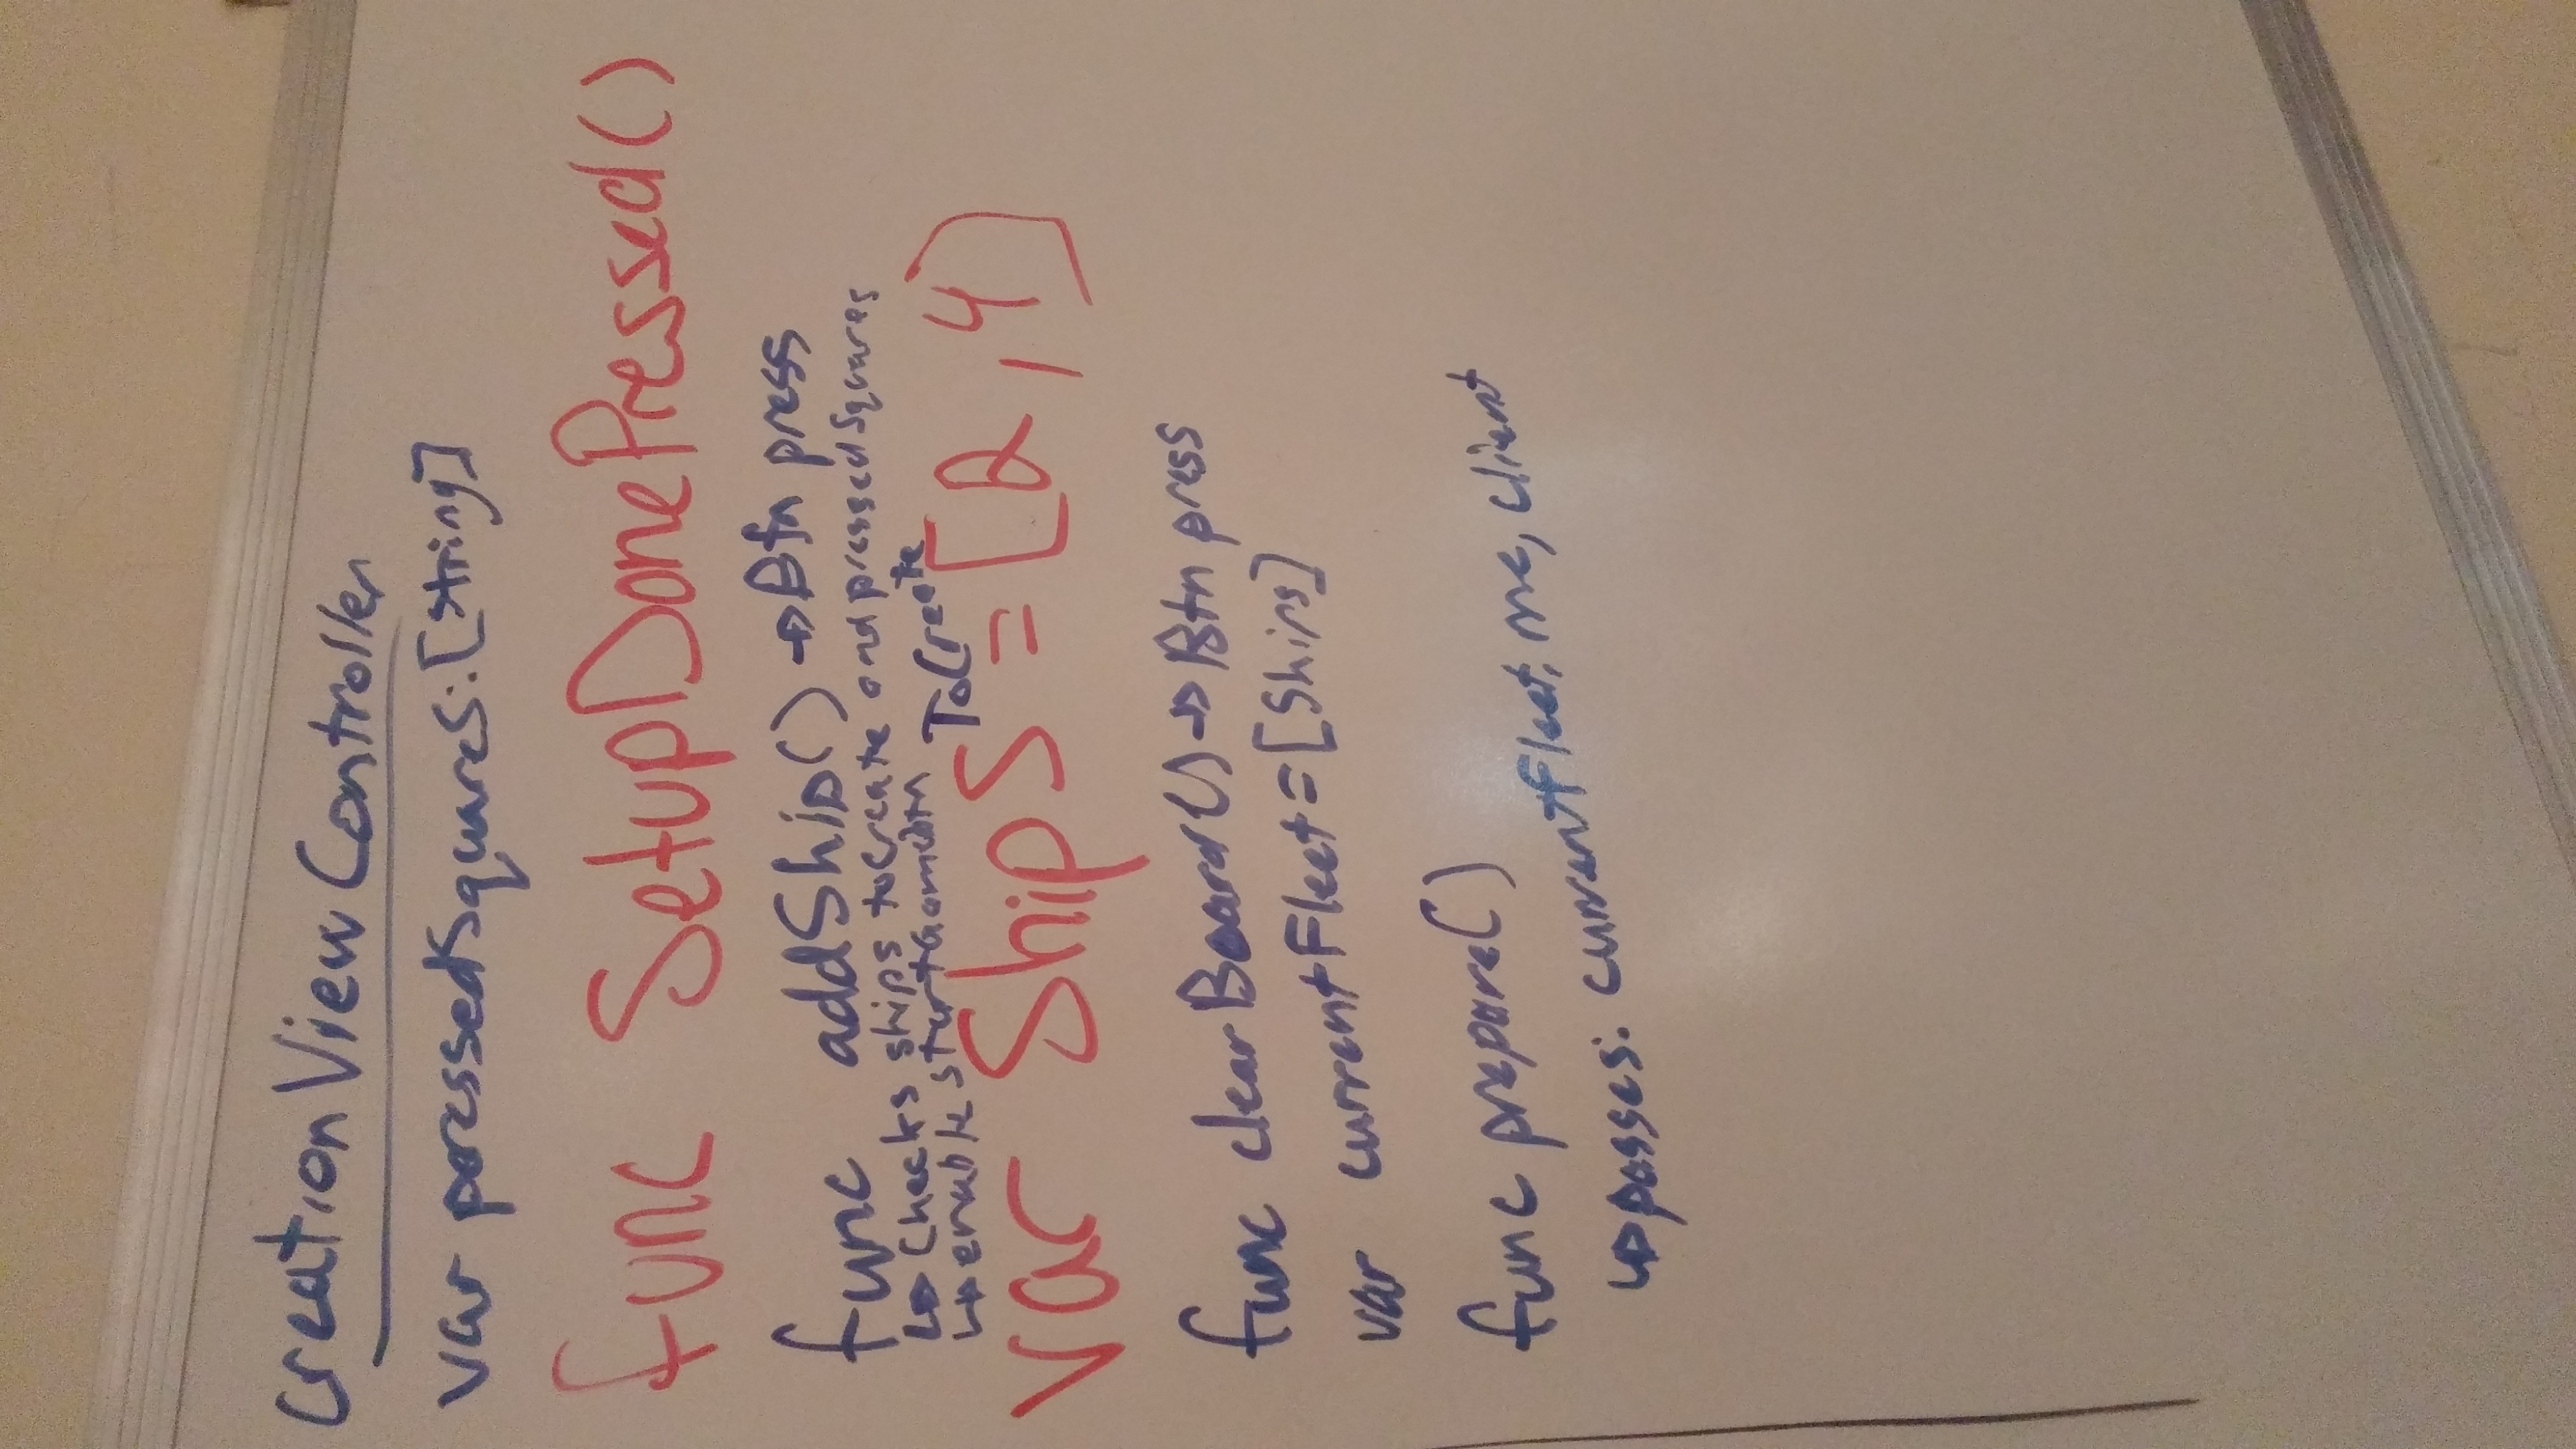 CreationViewController
var poressedSquares:[String]
func SetupDonePressed()
func addShip() → Btn press
↳ Checks ships toCreate and pressedSquares
↳ enable startGameBtn
var Ships ToCreate = [2,4]
func clearBoard() → Btn press
var currentFleet = [Ships]
func prepare()
↳ passes: currentFleet, me, client